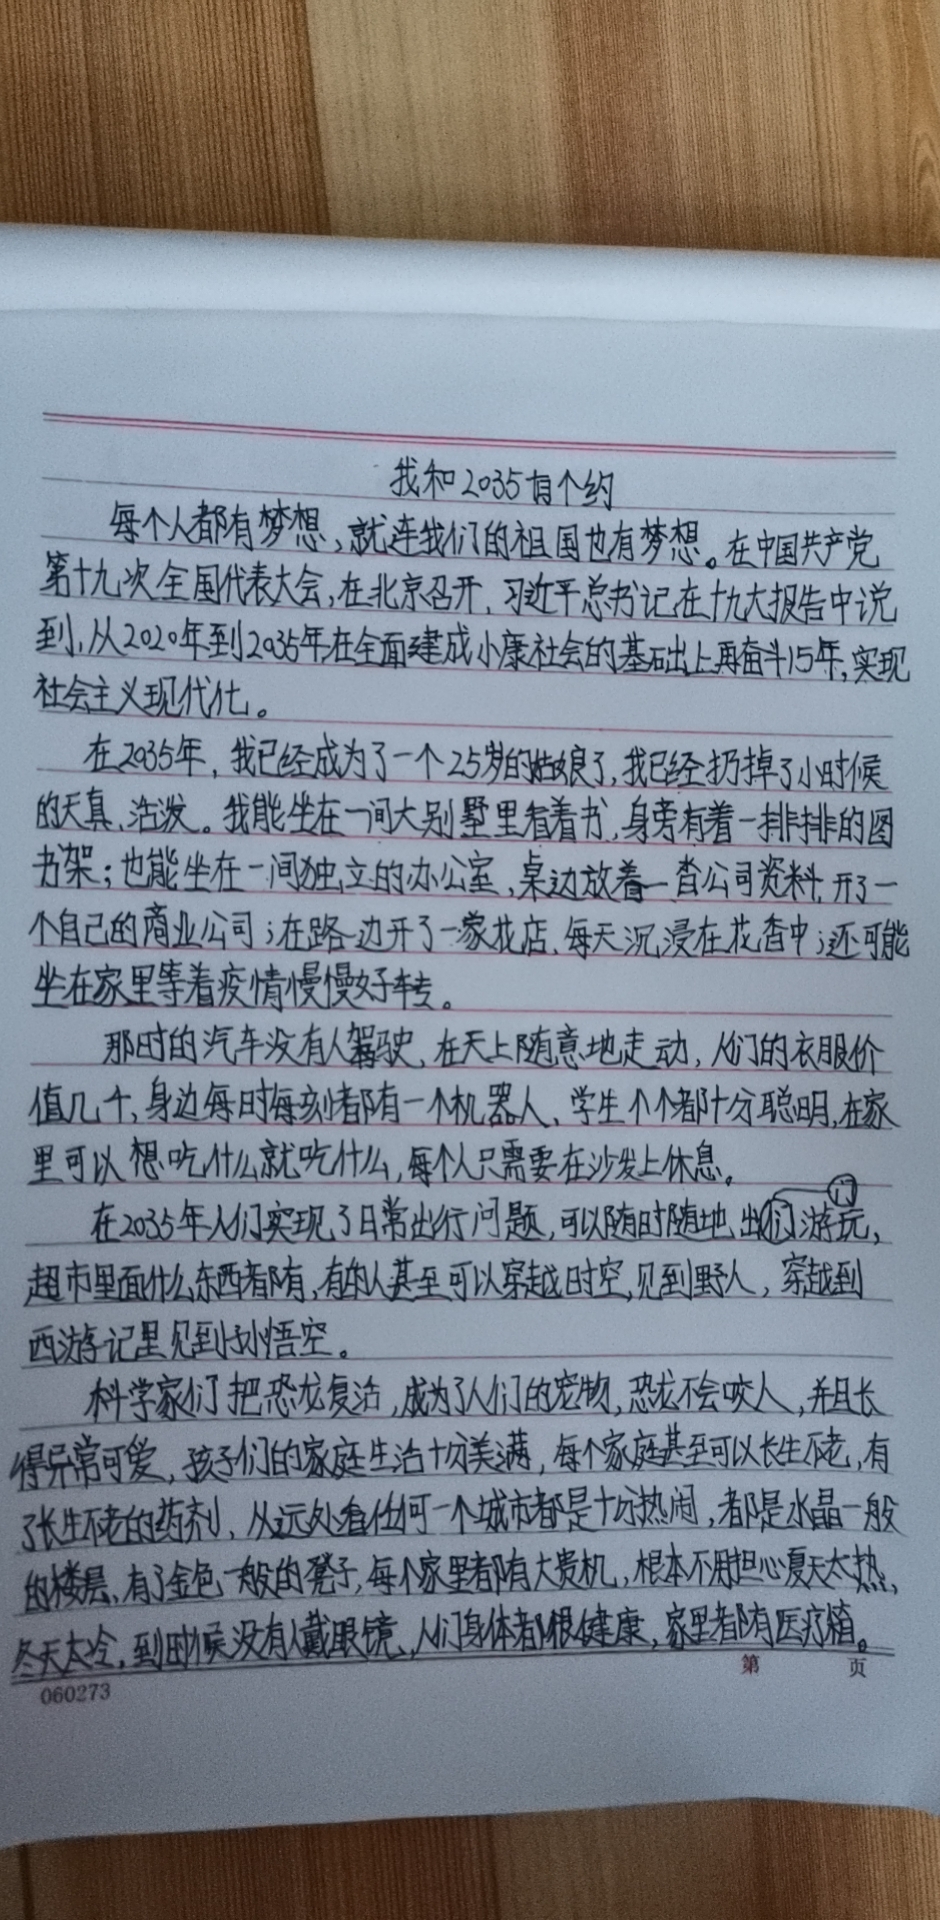 我和2035有个约
每个人都有梦想,就连我们的祖国也有梦想。在中国共产党
第十九次全国代表大会,在北京召开,习近平总书记在十九大报告中说
到,从2020年到2035年,在全面建成小康社会的基础上再奋斗15年,实现
社会主义现代化。
在2035年,我已经成为了一个25岁的姑娘了,我已经扔掉了小时候
的天真、活泼。我能坐在一间大别墅里看着书,身旁有着一排排的图
书架;也能坐在一间独立的办公室,桌边放着一沓公司资料,开了一
个自己的商业公司;在路边开了一家花店,每天沉浸在花香中;还可能
坐在家里等着疫情慢慢好转。
那时的汽车没有人驾驶,在天上随意地走动,人们的衣服价
值几千,身边每时每刻都有一个机器人,学生个个都十分聪明,在家
里可以想吃什么就吃什么,每个人只需要在沙发上休息。
在2035年人们实现了日常出行问题,可以随时随地出门游玩,
超市里面什么东西都有,有的人甚至可以穿越时空,见到野人,穿越到
西游记里见到孙悟空。
科学家们把恐龙复活,成为了人们的宠物,恐龙不会咬人,并且长
得异常可爱,孩子们的家庭生活十分美满,每个家庭甚至可以长生不老,有
了长生不老的药剂,从远处看任何一个城市都是十分热闹,都是水晶一般
的楼层,有了金色一般的凳子,每个家里都有大贵机,根本不用担心夏天太热,
冬天太冷,到时候没有人戴眼镜,人们身体都很健康,家里都有医疗箱。
060273 第 页